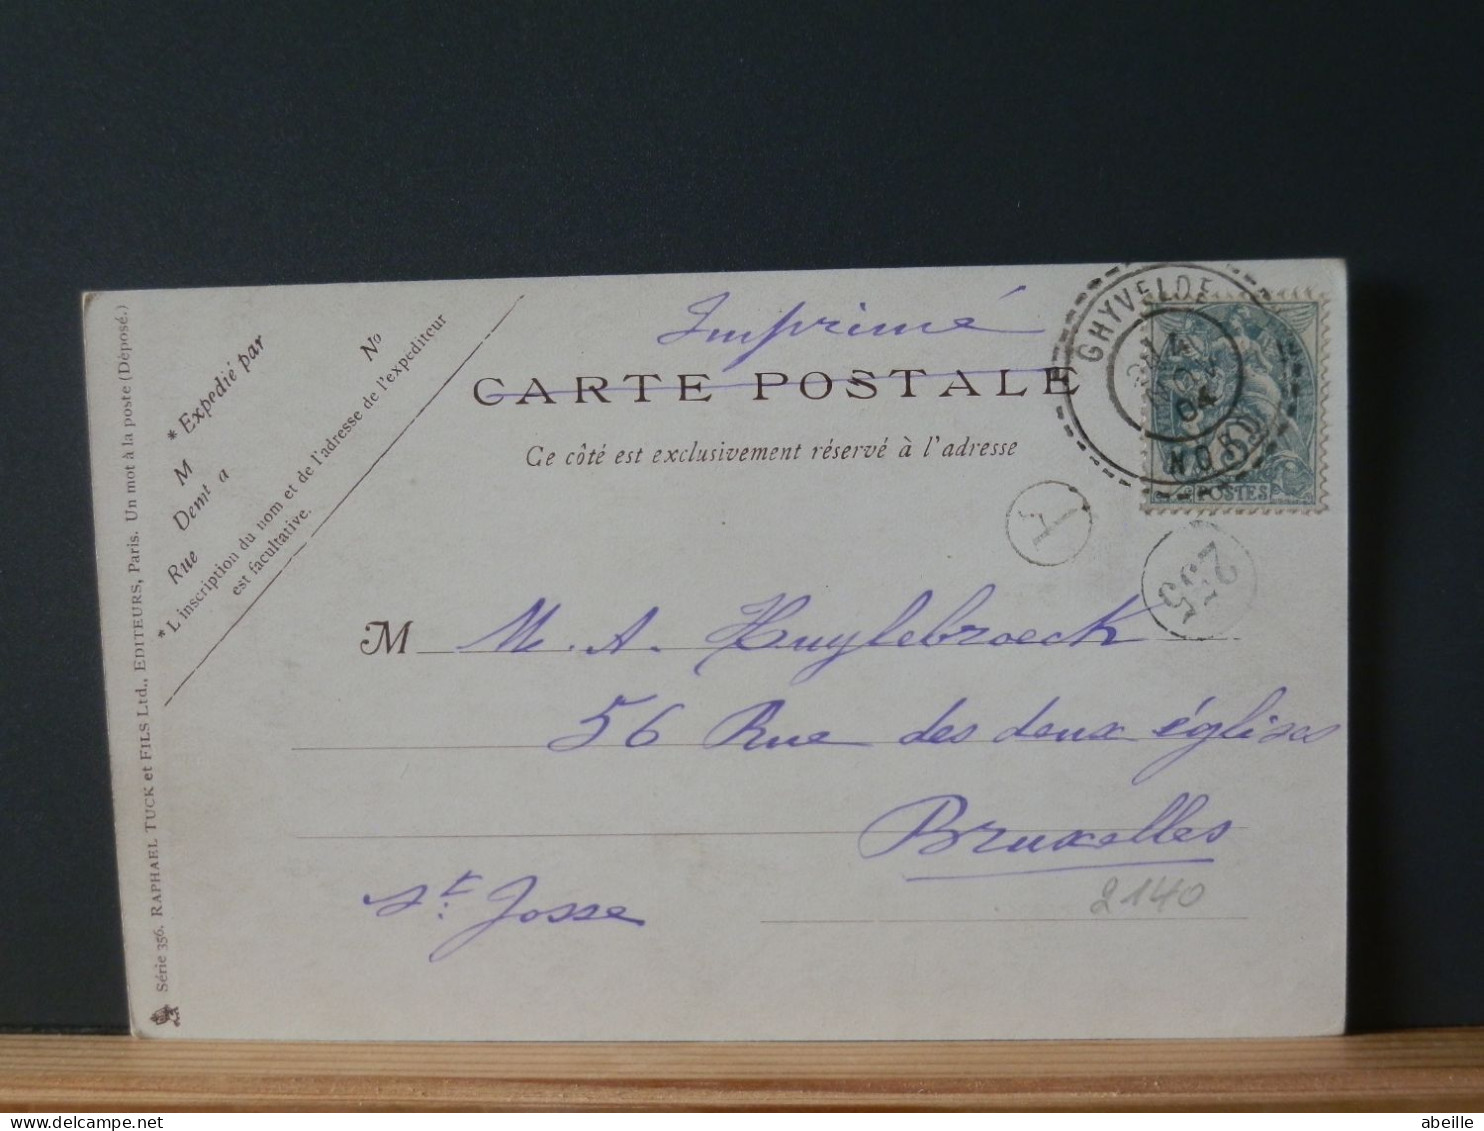 Imprimé
CARTE POSTALE
Ce côté est exclusivement réservé à l'adresse
GHYVELDE
NOV
04
NORD
POSTES
1
255
M M. A. Huylebroeck
56 Rue des deux églises
Bruxelles
St. Josse
2140
* Expedié par
M No
Demt a
Rue
* L'inscription du nom et de l'adresse de l'expediteur
est facultative.
Série 356. RAPHAEL TUCK et FILS Ltd., EDITEURS, Paris. Un mot à la poste (Déposé.)
abeille